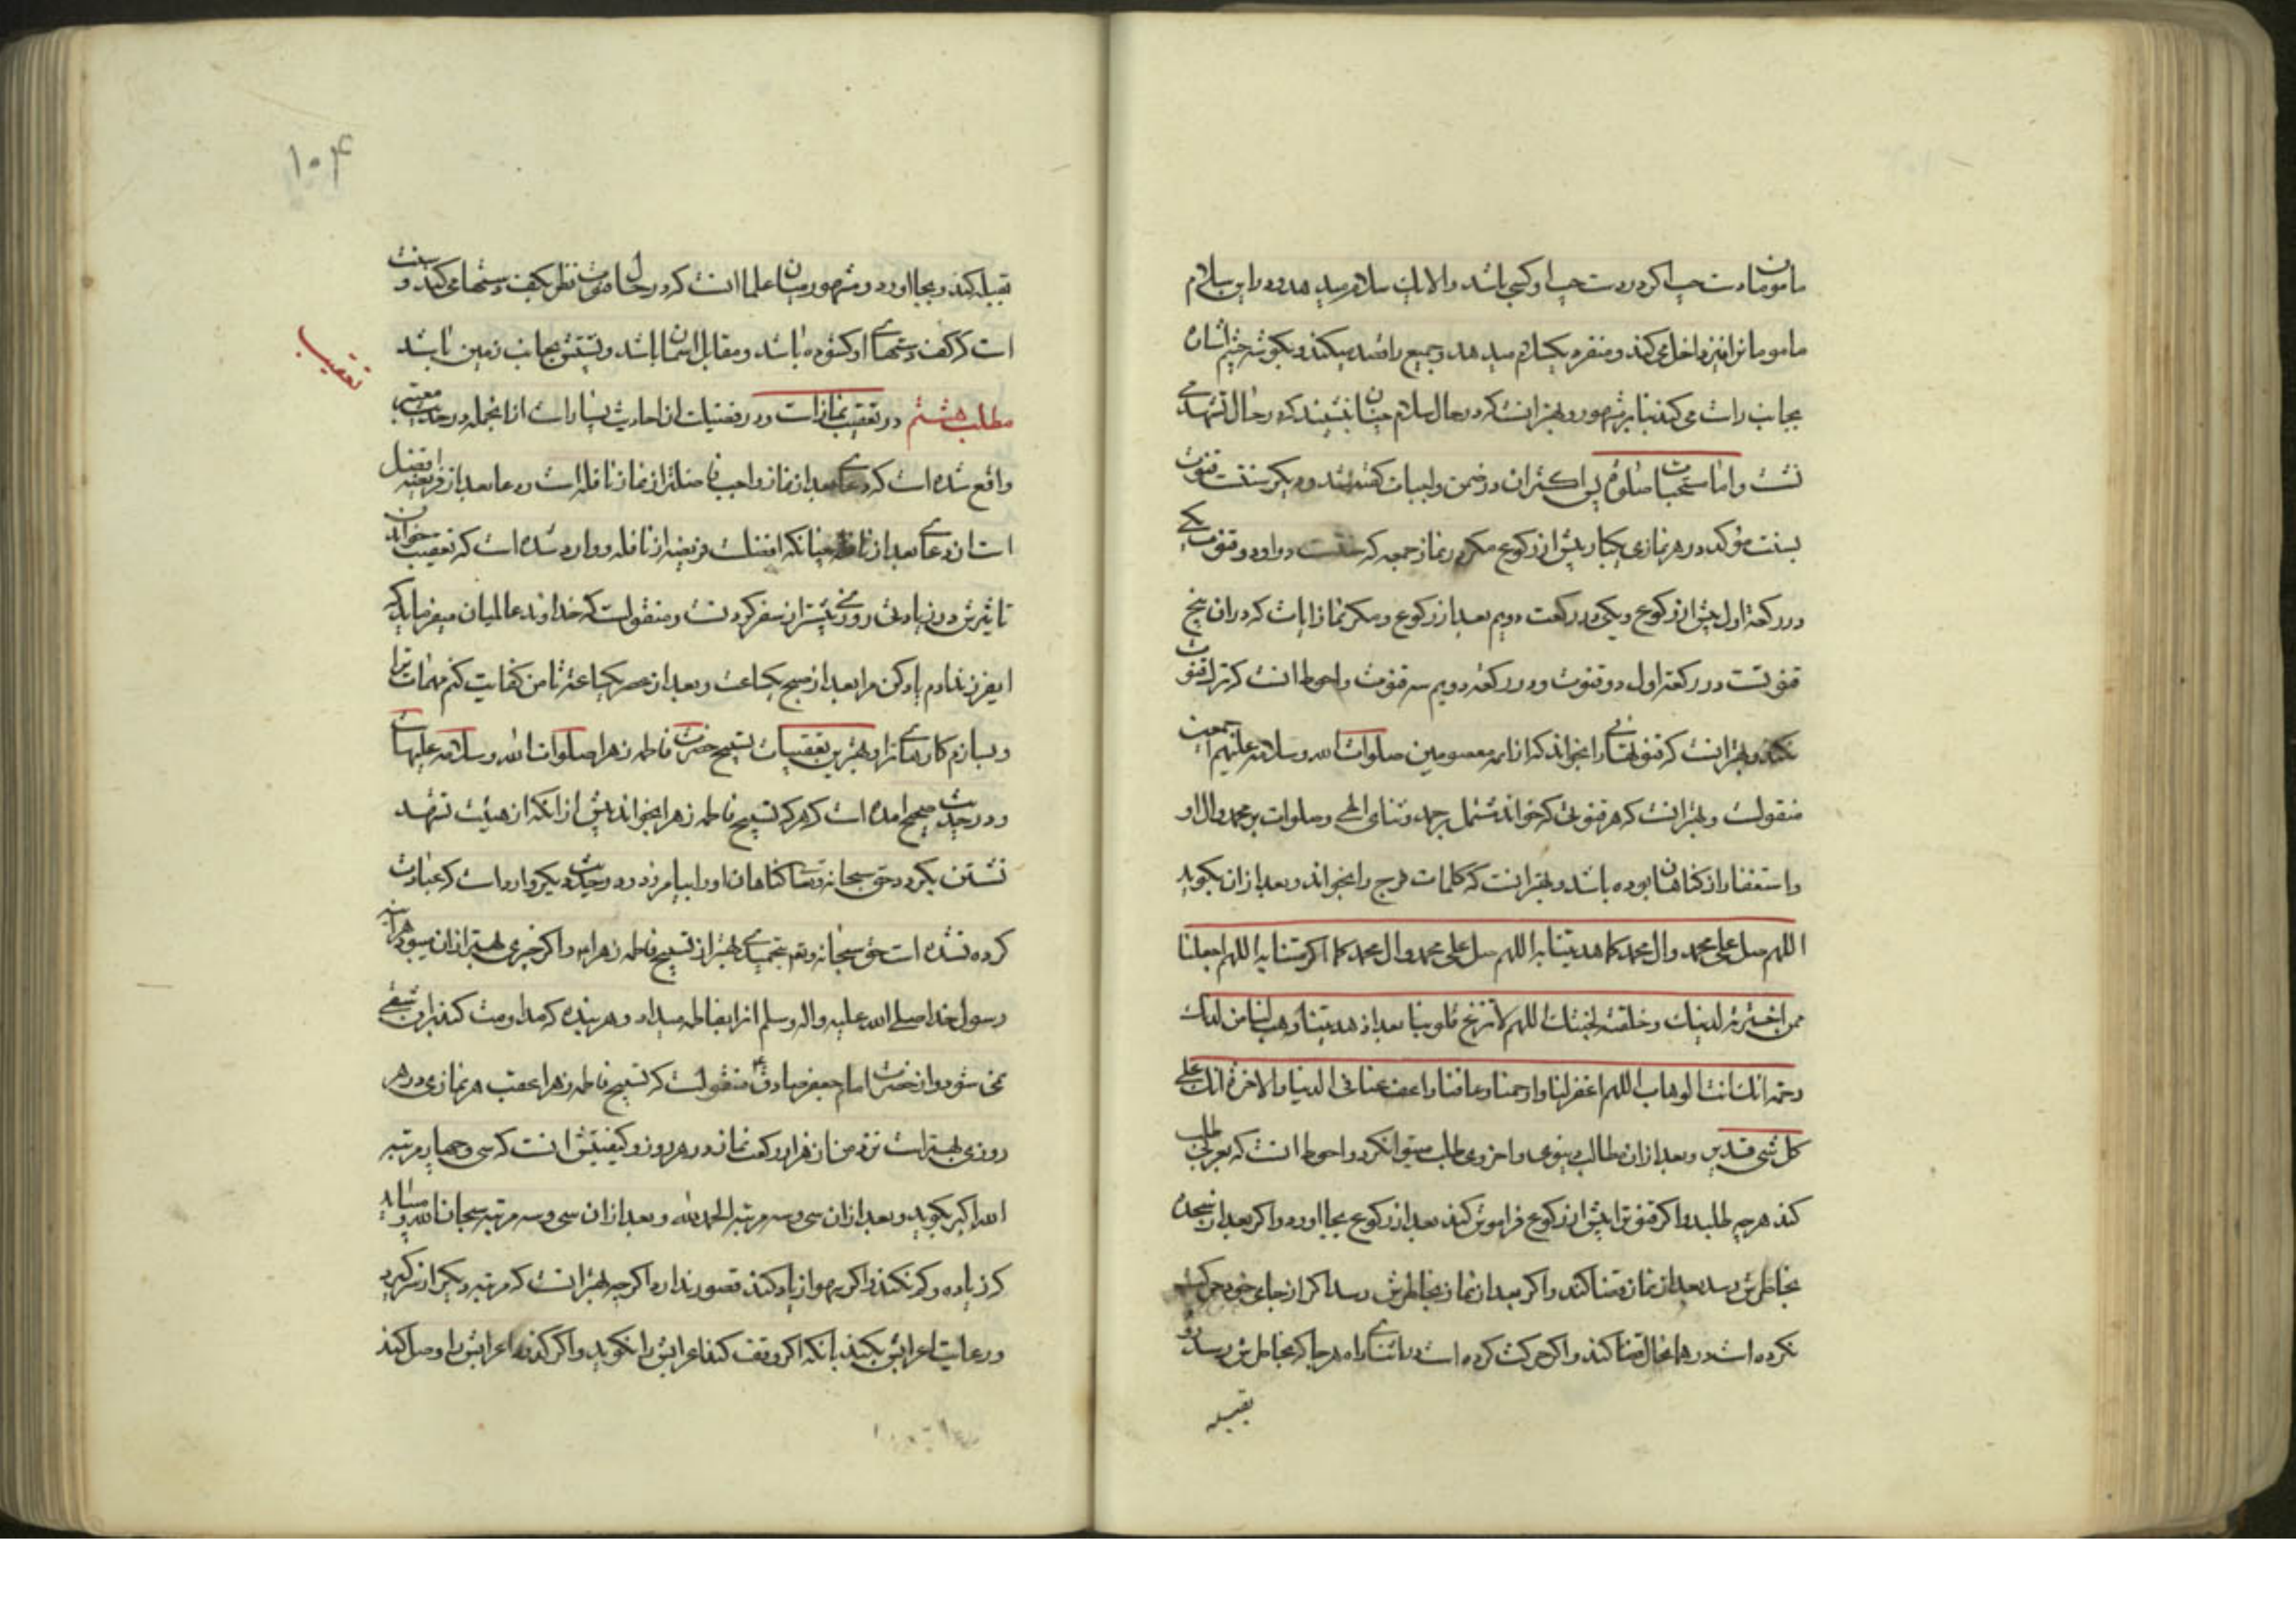 مامومان دست چپ اگر در دست چپ او کسی باشد والا یک سلام میدهد و در این سلام
مامومانرا نیز داخل می کند و منفرد یکسلام میدهد و جمیع را قصد میکند و بکوشه چشم اشاره
بجانب راست می کند بنابر مشهور و بهتر انست که در حال سلام چنان نشیند که در حال تشهد می
نشست و اما مستحبات صلوة پس اکثر ان در ضمن واجبات گفته شد و دیگر سنتست قنوت
بسنت مؤکد در هر نمازی یکبار پیش از رکوع مکر در نماز جمعه که سنت دو قنوت یکی
در رکعة اول پیش از رکوع ویکی در رکعت دویم بعد از رکوع و مکر نماز ایات که در ان پنج
قنوتست در رکعة اول دو قنوت و در رکعة دویم سه قنوت و احوط انست که ترک قنوت
نکند و بهتر انست که قنوتهائی را بخواند که از ائمه معصومین صلوات الله وسلامه علیهم اجمعین
منقولست و بهتر انست که هر قنوتی که خواند مشتمل بر حمد و ثنای الهی و صلوات بر محمد وال او
و استغفار از کناهان بوده باشد و بهتر انست که کلمات فرج را بخواند و بعد از ان بکوید
اللهم صل علی محمد وال محمد کما هدیتنا به اللهم صل علی محمد وال محمد کما اکرمتنا به اللهم اجعلنا
ممن اخترته لدینک وخلقته لجنتک اللهم لا تزغ قلوبنا بعد اذ هدیتنا وهب لنا من لدنک
رحمة انک انت الوهاب اللهم اغفر لنا وارحمنا وعافنا واعف عنا فی الدنیا والاخرة انک علی
کل شی قدیر و بعد از ان مطالب دنیوی و اخروی طلب میتوان کرد و احوط انست که بعربی طلب
کند هر چه طلبد و اکر قنوترا پیش از رکوع فراموش کند بعد از رکوع بجا اورد و اکر بعد از سجده
بخاطرش رسد بعد از نماز قضا کند و اکر بعد از نماز بخاطرش رسد اکر از جای خود حرکت
نکرده است در همانحال قضا کند و اکر حرکت کرده است در اثنای راه هر جا که بخاطرش رسد رو
بقبله
۱۰۴
تعقیب
بقبله کند و بجا اورد و مشهور میان علما انست که در حال قنوت نظر بکف دستها می کند و سنت
است که کف دستهای او کشوده باشد و مقابل اسمان باشد و پشتش بجانب زمین باشد
مطلب هشتم در تعقیب نماز است و در فضیلت ان احادیث بسیار است از انجمله در حدیث معتبر
واقع شده است که دعای بعد از نماز واجب فاضلتر از نماز نافله است و دعا بعد از فریضه افضل
است از دعای بعد از نافله چنانکه افضلست فریضه از نافله و وارد شده است که تعقیب خواندن
تاثیرش در زیادتی روزی بیشتر از سفر کردنست و منقولست که خداوند عالمیان میفرماید که
ای فرزند ادم یاد کن مرا بعد از صبح یکساعت و بعد از عصر یکساعة تا من کفایت کنم مهمات ترا
و بسازم کارهای ترا و بهترین تعقیبات تسبیح حضرت فاطمه زهرا صلوات الله وسلامه علیهاست
و در حدیث صحیح امده است که هر که تسبیح فاطمه زهرا بخواند پیش از انکه از هیئت تشهد
نشستن بکردد حق سبحانه وتعالی کناهان او را بیامرزد و در حدیث دیکر وارد است که عبادت
کرده نشده است حق سبحانه و تعـ بتحمیدی بهتر از تسبیح فاطمه زهرا و اکر چیزی بهتر از ان میبود هراینه
رسول خدا صلی الله علیه واله وسلم انرا بفاطمه میداد و هر بنده که مداومت کند بران شقی
نمی شود و از حضرت امام جعفر صادق ع منقولست که تسبیح فاطمه زهرا عقب هر نمازی در هر
روزی بهتر است نزد من از هزار رکعت نماز در هر روز و کیفیتش انست که سی و چهار مرتبه
الله اکبر بکوید و بعد از ان سی و سه مرتبه الحمد لله و بعد از ان سی و سه مرتبه سبحان الله و میباید
که زیاده و کم نکند و اکر سهوا زیاد کند قصور ندارد اکرچه بهتر انست که مرتبه دیکر از سر کیرد
و رعایت اعرابش بکند بانکه اکر وقف کند اعرابش را نکوید و اکر نکند اعرابش را وصل کند